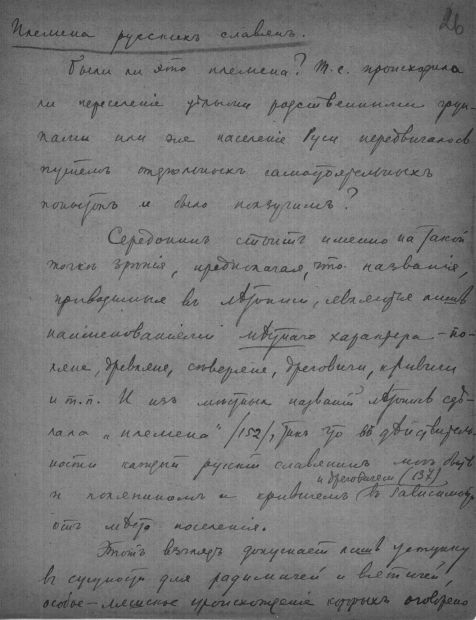 26
Племена русскихъ славянъ.
Были ли это племена? Т.е. происходила
ли переселенiе цѣлыми родственными груп-
пами или же населенiе Руси передвигалось
путемъ отдѣльныхъ самостоятельныхъ
попытокъ и было ползучимъ?
Середонинъ стоитъ именно на такой
точкѣ зрѣнiя, предполагая, что названiя,
приводимыя въ лѣтописи, являются лишь
наименованiями мѣстнаго характера – по-
ляне, древляне, сѣверяне, дреговичи, кривичи
и т.п. И изъ мѣстныхъ названiй лѣтопись сдѣ-
лала „племена" /152/, такъ что въ дѣйствитель-
ности каждый русскiй славянинъ могъ быть
и дреговичемъ (137)
и поляниномъ и кривичемъ въ зависимости
отъ мѣста поселенiя.
Этотъ взглядъ допускаетъ лишь уступку
въ сущности для радимичей и вятичей,
особое – ляшское происхожденiе которыхъ оговорено